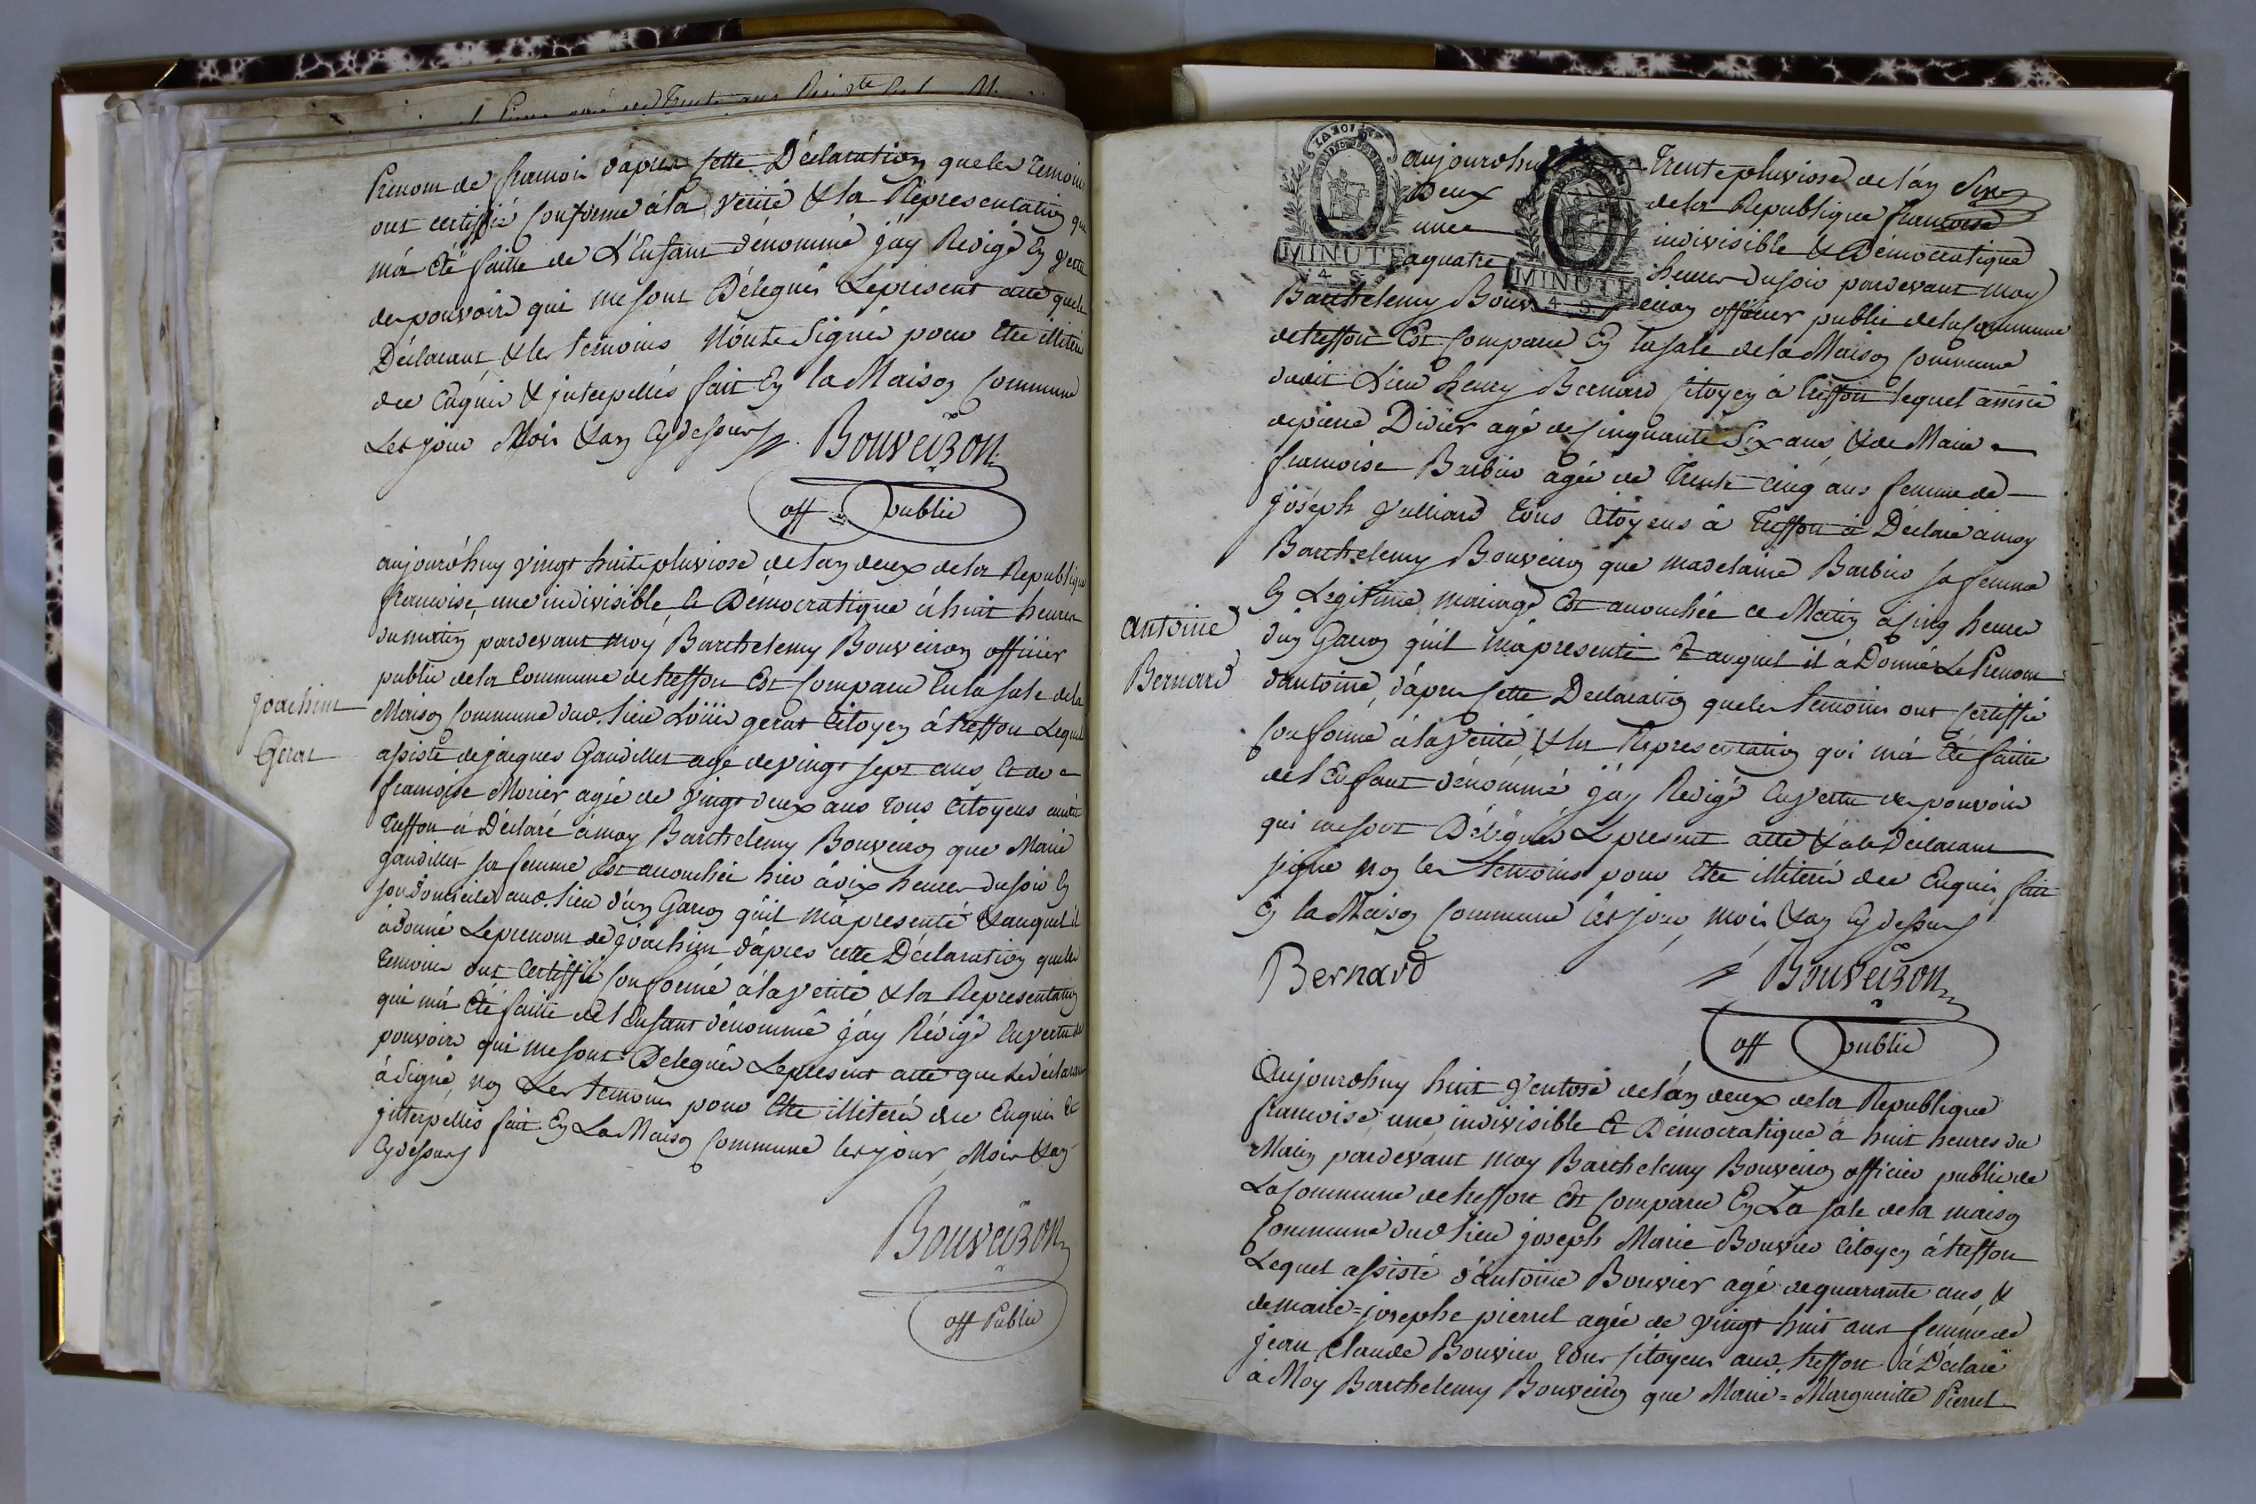 Prenom de francois d'apres cette Déclaration que les temoins
ont certiffié conforme à la verité & la Representation qui
m'a été faitte de L'Enfant dénommé j'ay Redigé En vertu
des pouvoirs qui me sont Délegués Le present acte que le
Déclarant & les temoins N'ont Signés pour être illiteré
de ce Enquis & interpellés fait En la Maison Commune
Les jour Mois & an Cy dessus
Bouveiron
off public
aujourd'huy vingt huit pluviose de l'an deux de la Republique
francoise, une indivisible & Démocratique à huit heures
du matin pardevant moy Barthelemy Bouveiron officier
public de la Commune de treffort Est Comparu En la sale de la
Maison Commune dud. lieu gerat Citoyen à treffort Lequel
assisté de jacques Gaudillet agé de vingt sept ans et de
francoise Morier agée de vingt deux ans tous Citoyens
treffort à Déclaré à moy Barthelemy Bouveiron que Marie
gaudillet sa femme Est accouchée hier à dix heures du soir En
son Domicile aud. lieu d'un Garcon qu'il m'a presenté & auquel il
à donné Le prenom de joachim d'apres cette Déclaration que les
temoins ont Certiffié Conforme à la verité & la Representation
qui m'a Eté faitte de l'Enfant dénommé j'ay Rédigé En vertu des
pouvoirs qui me sont Delegués Le present acte que Le déclarant
à signé, non Les temoins pour être illiteré de ce Enquis &
interpellés fait En La Maison Commune les jour, Mois & an
Cy dessus
joachim
Gerat
Bouveiron
off Public
MINUTE
4 S.
MINUTE
4 S.
aujourd'huy trente pluviose de l'an
Deux de la Republique francoise
une indivisible & Démocratique
a quatre heures du soir pardevant moy
Barthelemy Bouveiron officier public de la Commune
de treffort Est Comparu En la sale de la Maison Commune
dudit Lieu henry Bernard Citoyen à treffort lequel assisté
de pierre Didier agé de Cinquante Six ans, & de Marie
francoise Barbier agée de trente cinq ans femme de
joseph vulliard tous Citoyens à treffort à Déclaré à moy
Barthelemy Bouveiron que madelaine Barbier sa femme
En Legitime mariage Est accouchée ce Matin à cinq heures
d'un Garcon qu'il m'a presenté & auquel il à Donné Le Prenom
d'antoine, d'apres cette Declaration que les temoins ont Certiffié
Conforme à la verité & la Representation qui m'a Eté faitte
de l'Enfant dénommé j'ay Redigé En vertu des pouvoirs
qui me sont Délegués Le present acte & a le Déclarant
signé non les temoins pour être illiteré de ce Enquis, fait
En la Maison Commune les jour, mois & an Cy dessus
antoine
Bernard
Bernard
Bouveiron
off public
Aujourd'huy huit ventose de l'an deux de la Republique
francoise, une, indivisible Et Démocratique à huit heures du
Matin pardevant moy Barthelemy Bouveiron officier public de
La Commune de treffort Est Comparu En La sale de la maison
Commune dud. lieu joseph Marie Bouvier Citoyen à treffort
Lequel assisté d'antoine Bouvier agé de quarante ans, &
de marie=josephe pierrel agée de vingt huit ans femme de
jean Claude Bouvier tous Citoyens aud. treffort à Déclaré
à Moy Barthelemy Bouveiron que Marie=Margueritte Pierrel